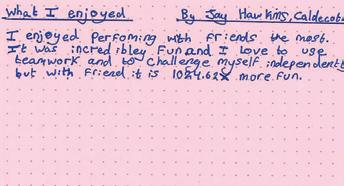 What I enjoyed By Jay Hawkins, Caldecot
I enjoyed Perfoming with friends the most.
It was incredibley fun and I love to use
teamwork and to challenge myself independently
but with friend it is 1084.62% more fun.